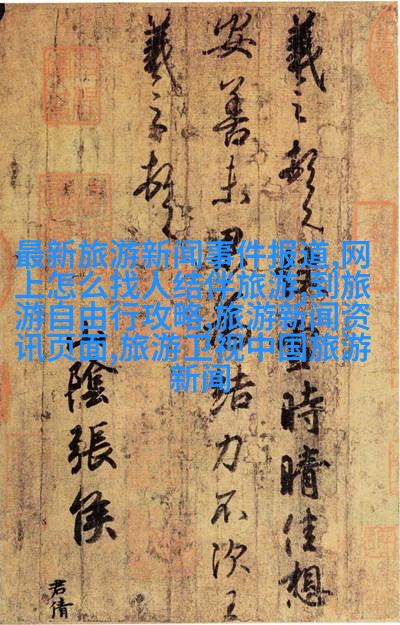 最新旅游新闻事件报道,网
上怎么找人结伴旅游,到旅
游自由行攻略,旅游新闻资
讯页面,旅游卫视中国旅游
新闻
羲之頓首時晴佳想
安善未果結力不次王
羲之頓首
山陰張侯
君倩